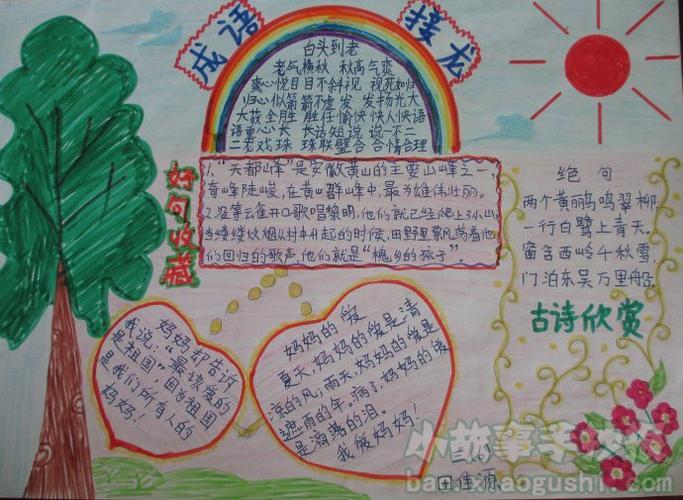 成语接龙
白头到老
老气横秋 秋高气爽
爽心悦目 目不斜视 视死如归
归心似箭 箭不虚发 发扬光大
大获全胜 胜任愉快 快人快语
语重心长 长话短说 说一不二
二老戏珠 珠联璧合 合情合理
好句收藏
1."天都峰"是安徽黄山的主要山峰之一,
奇峰陡峻,在黄山群峰中,最为雄伟壮丽。
2.没等云雀开口歌唱黎明,他们就已经爬上了小山,
当缕缕炊烟从村中升起的时候,田野里飘荡着他
们回归的歌声,他们就是"槐乡的孩子"。
绝句
两个黄鹂鸣翠柳,
一行白鹭上青天。
窗含西岭千秋雪,
门泊东吴万里船。
古诗欣赏
妈妈都告诉
我说:"最该爱的
是祖国",因为祖国
是我们所有人的
妈妈!
妈妈的爱
夏天,妈妈的爱是清
凉的风;雨天,妈妈的爱是
遮雨的伞。病了,妈妈的爱
是滴落的泪。
我爱妈妈!
三(6)
田佳源
小故事手抄报
ban.xiaogushi.com